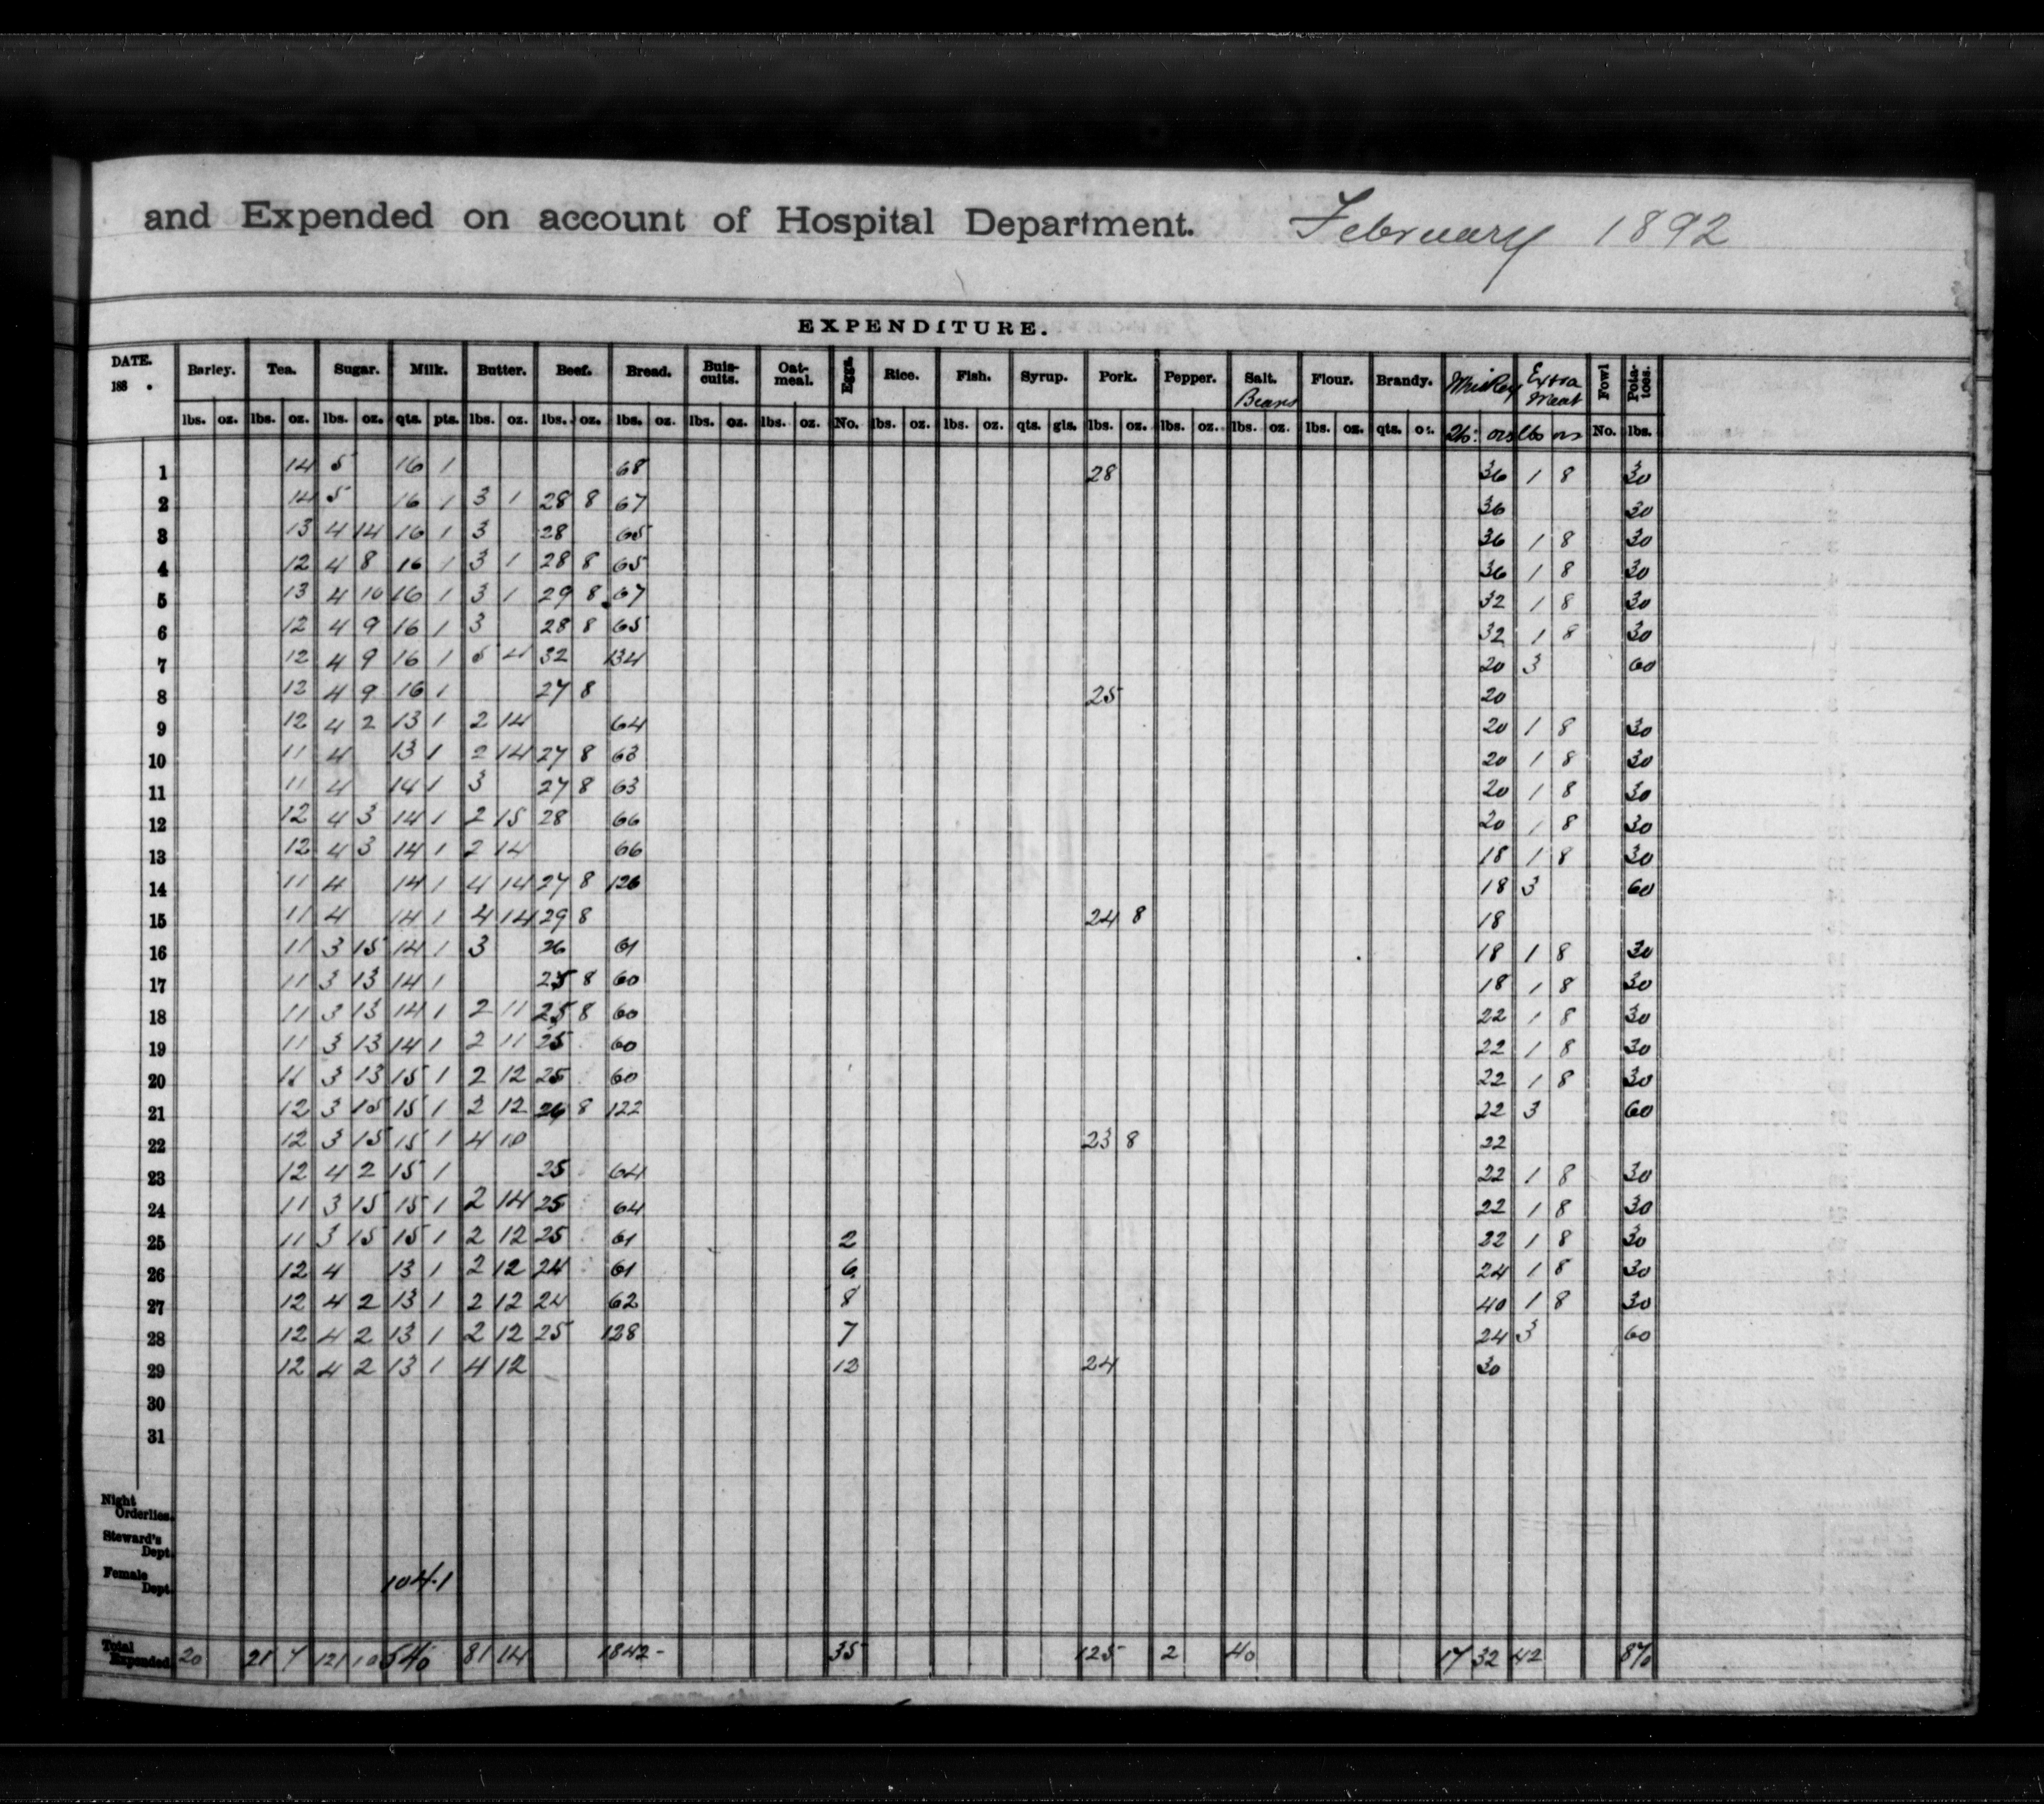 and Expended on account of Hospital Department. February 1892
EXPENDITURE.
DATE. 188 . Barley. Tea. Sugar. Milk. Butter. Beef. Bread. Buis-cuits. Oat-meal. Eggs. Rice. Fish. Syrup. Pork. Pepper. Salt. Beans Flour. Brandy. Whiskey Extra Meat Fowl Pota-toes.
lbs. oz. lbs. oz. lbs. oz. qts. pts. lbs. oz. lbs. oz. lbs. oz. lbs. oz. lbs. oz. No. lbs. oz. lbs. oz. qts. gls. lbs. oz. lbs. oz. lbs. oz. lbs. oz. qts. oz. ozs lbs ozs No. lbs.
1 14 5 16 1 68 28 36 1 8 30
2 14 5 16 1 3 1 28 8 67 36 30
3 13 4 14 16 1 3 28 65 36 1 8 30
4 12 4 8 16 1 3 1 28 8 65 36 1 8 30
5 13 4 10 16 1 3 1 29 8 67 32 1 8 30
6 12 4 9 16 1 3 28 8 65 32 1 8 30
7 12 4 9 16 1 5 4 32 134 20 3 60
8 12 4 9 16 1 27 8 25 20
9 12 4 2 13 1 2 14 64 20 1 8 30
10 11 4 13 1 2 14 27 8 63 20 1 8 30
11 11 4 14 1 3 27 8 63 20 1 8 30
12 12 4 3 14 1 2 15 28 66 20 1 8 30
13 12 4 3 14 1 2 14 66 18 1 8 30
14 11 4 14 1 4 14 27 8 126 18 3 60
15 11 4 14 1 4 14 29 8 24 8 18
16 11 3 15 14 1 3 26 61 18 1 8 30
17 11 3 13 14 1 25 8 60 18 1 8 30
18 11 3 13 14 1 2 11 25 8 60 22 1 8 30
19 11 3 13 14 1 2 11 25 60 22 1 8 30
20 11 3 13 15 1 2 12 25 60 22 1 8 30
21 12 3 15 15 1 2 12 26 8 122 22 3 60
22 12 3 15 15 1 4 10 23 8 22
23 12 4 2 15 1 25 64 22 1 8 30
24 11 3 15 15 1 2 14 25 64 22 1 8 30
25 11 3 15 15 1 2 12 25 61 2 22 1 8 30
26 12 4 13 1 2 12 24 61 6 24 1 8 30
27 12 4 2 13 1 2 12 24 62 8 40 1 8 30
28 12 4 2 13 1 2 12 25 128 7 24 3 60
29 12 4 2 13 1 4 12 12 24 30
30
31
Night Orderlies.
Steward's Dept.
Female Dept. 104.1
Total Expended. 20 21 7 121 10 540 81 14 1842 - 35 125 2 40 17 32 42 870